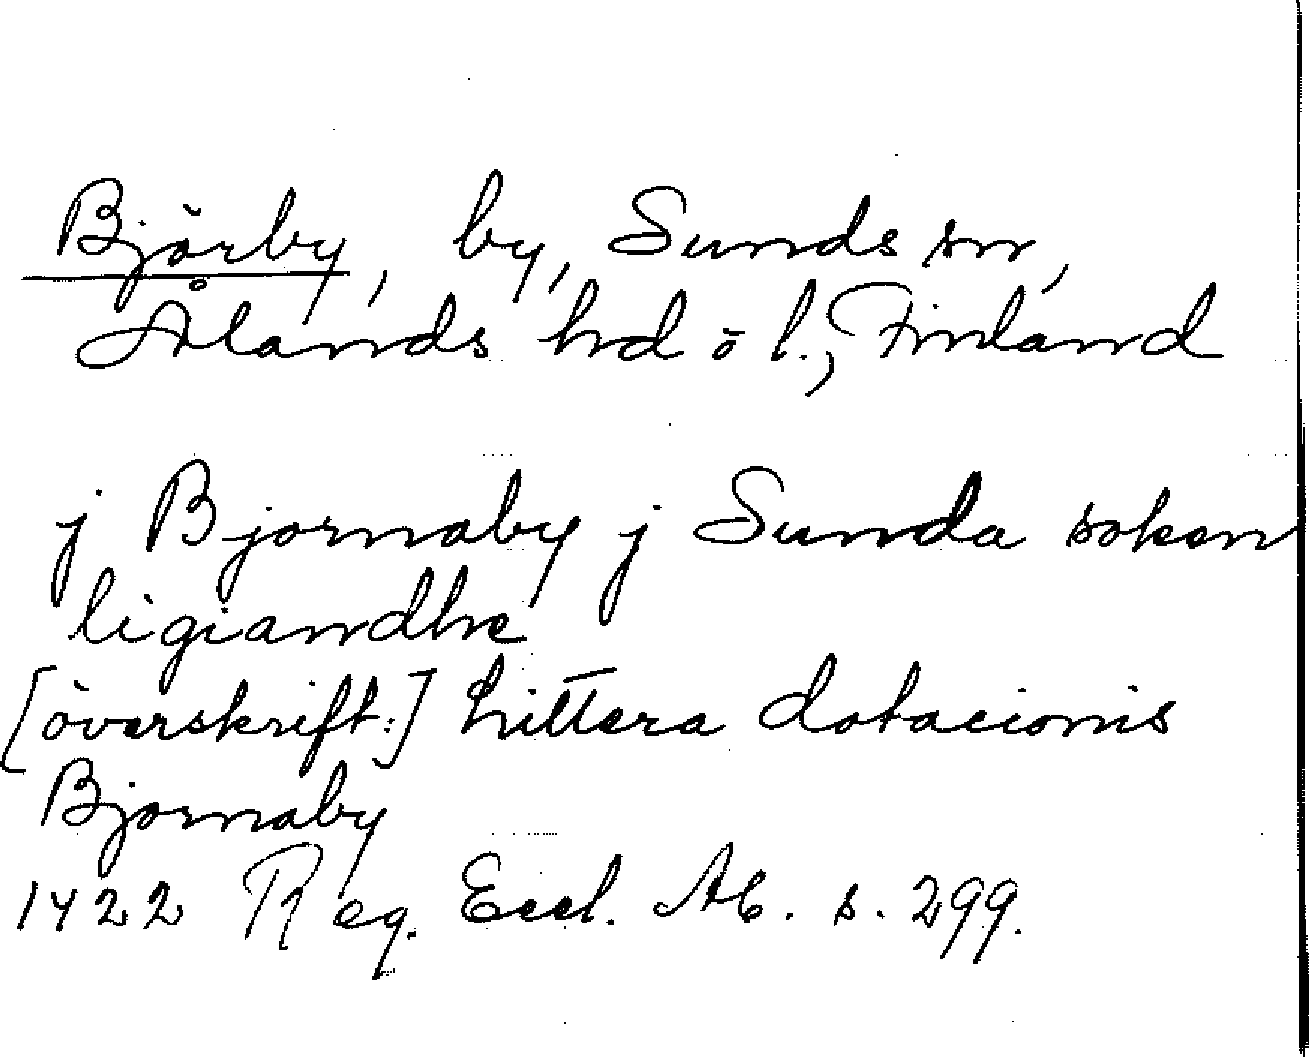 Björby, by, Sunds sn,
Ålands hd ö l., Finland
j Bjornaby j Sunda soken
ligiandhe
[överskrift:] Littera dotacionis
Bjornaby
1422 Reg. Eccl. Ab. s. 299.